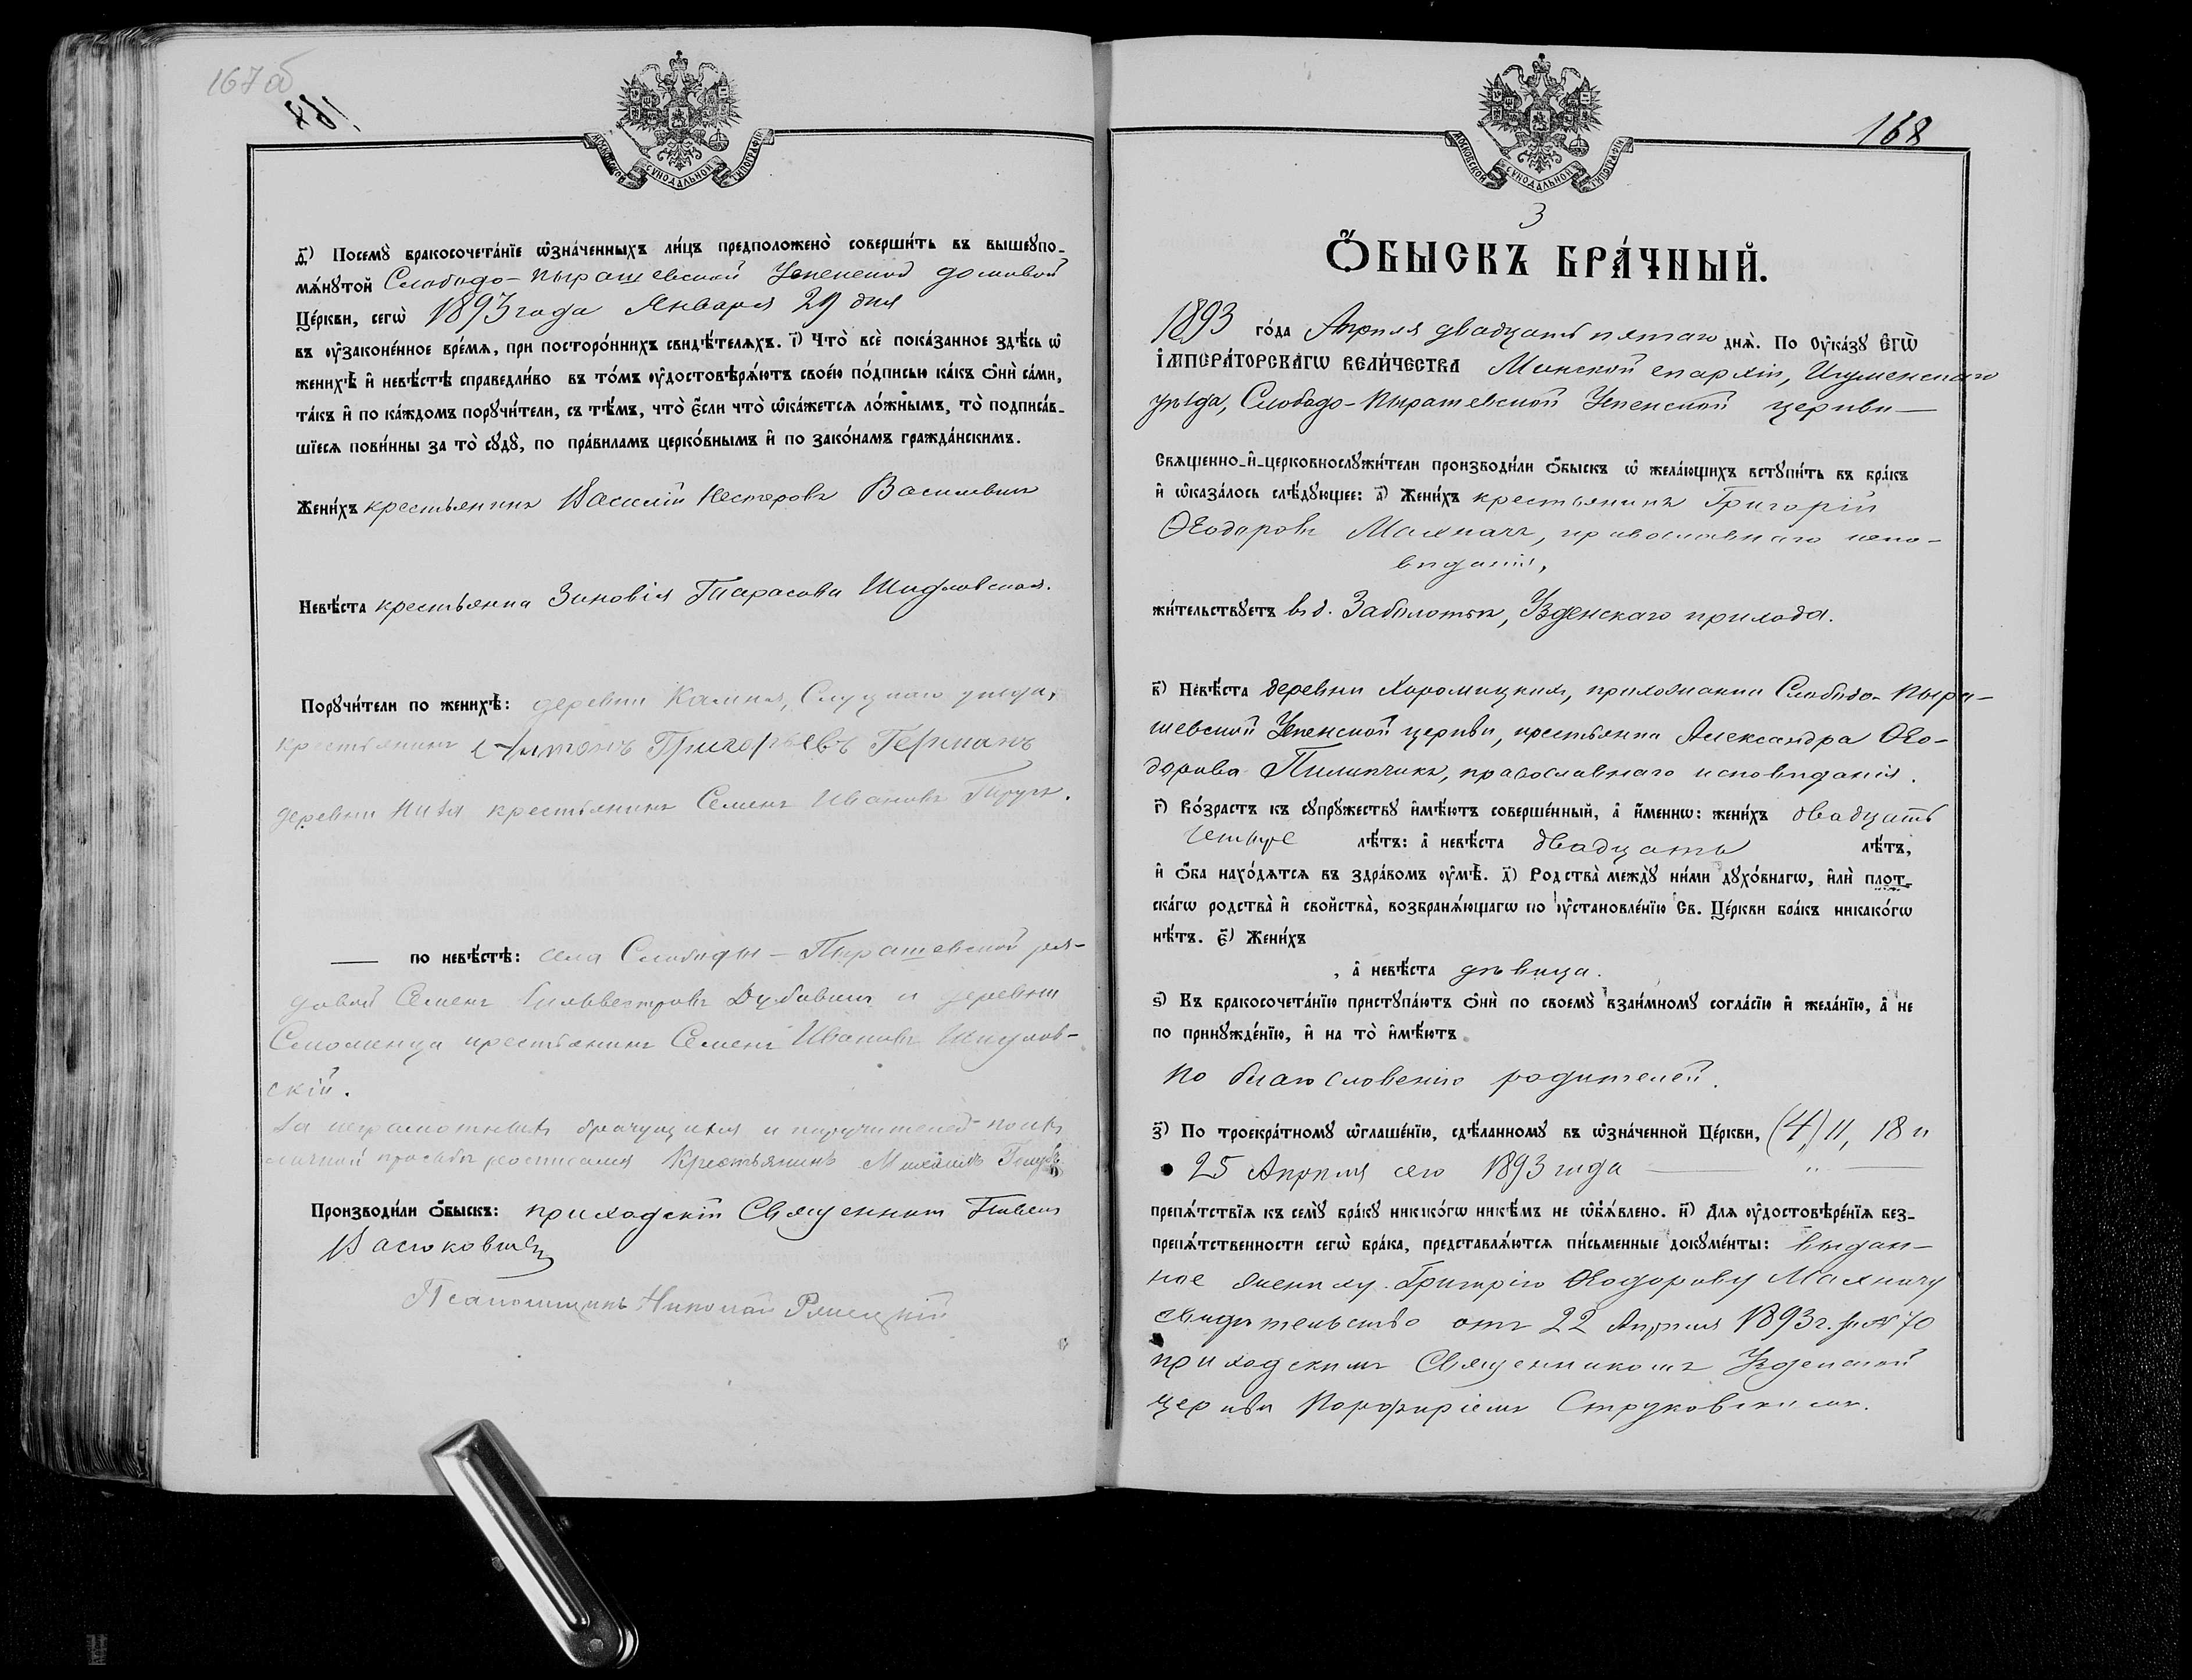 167об
168
МОСКОВСКОЙ СѴНОДАЛЬНОЙ ТИПОГРАФІИ
д҃) Посемꙋ̀ бракосочета́нїе ѡ҆зна́ченныхъ ли́цъ предположено̀ соверши́ть въ вышеꙋпо-
мѧ́нꙋтой Слободо-Пырашевской Успенской домовой
Це́ркви, сегѡ̀ 1893 года Января 29 дня
въ ᲂу҆законе́нное вре́мѧ, при посторо́ннихъ свидѣ́телѧхъ. і҃) Что̀ всѐ пока́занное здѣ́сь ѡ҆
женихѣ̀ и҆ невѣ́стѣ справедли́во въ то́мъ ᲂу҆достовѣрѧ́ютъ свое́ю по́дписью ка́къ ѻ҆нѝ са́ми,
та́къ и҆ по ка́ждомъ порꙋчи́тели, съ тѣ́мъ, что̀ є҆́сли что̀ ѡ҆ка́жетсѧ ло́жнымъ, то̀ подписа́в-
шїесѧ пови́нны за то̀ сꙋдꙋ̀, по пра́виламъ церко́внымъ и҆ по зако́намъ гражда́нскимъ.
Жени́хъ крестьянинъ Василій Нестеровъ Василевичъ
Невѣ́ста крестьянка Зиновія Тарасова Шидловская.
Порꙋчи́тели по женихѣ̀: деревни Камня, Слуцкаго уѣзда,
крестьянинъ Антонъ Григорьевъ Германъ
деревни крестьянинъ Семенъ Ивановъ
по невѣ́стѣ: села Слободы-Пырашевской ря-
довой Семенъ Сильвестровъ и деревни
крестьянинъ Семенъ Ивановъ Шидлов-
скій.
За неграмотныхъ брачущихся и поручителей по ихъ
личной просьбѣ росписался Крестьянинъ Михаилъ
Производи́ли ѻ҆́быскъ: приходскій Священникъ Павелъ
Васюковичъ
Псаломщикъ Николай
168
МОСКОВСКОЙ СѴНОДАЛЬНОЙ ТИПОГРАФІИ
3
Ѻ҆́БЫСКЪ БРА́ЧНЫЙ.
1893 го́да Апрѣля двадцать пятаго днѧ̀. По Оу҆ка́зꙋ Є҆гѡ̀
І҆МПЕРА́ТОРСКАГѠ ВЕЛИ́ЧЕСТВА Минской епархіи, Игуменскаго
уѣзда, Слободо-Пырашевской Успенской церкви —
Свѧще́нно-и҆-церковнослꙋжи́тели производи́ли ѻ҆́быскъ ѡ҆ жела́ющихъ встꙋпи́ть въ бра́къ
и҆ ѡ҆каза́лось слѣ́дꙋющее: а҃) Жени́хъ крестьянинъ Григорій
Ѳеодоровъ Махначъ, православнаго испо-
вѣданія,
жи́тельствꙋетъ въ д. Заболотьи, Узденскаго прихода.
в҃) Невѣ́ста деревни Хоромицкихъ, прихожанка Слободо-Пыра-
шевской Успенской церкви, крестьянка Александра Ѳео-
дорова Пилипчикъ, православнаго исповѣданія.
г҃) Во́зрастъ къ сꙋпрꙋ́жествꙋ и҆мѣ́ютъ соверше́нный, а҆̀ и҆́меннѡ: жени́хъ двадцать
четыре лѣ́тъ: а҆̀ невѣ́ста двадцать лѣ́тъ,
и҆ ѻ҆́ба нахо́дѧтсѧ въ здра́вомъ ᲂу҆мѣ̀. д҃) Родства̀ междꙋ̀ ни́ми дꙋхо́внагѡ, и҆лѝ плот-
ска́гѡ родства̀ и҆ свойства̀, возбранѧ́ющагѡ по ᲂу҆становле́нїю Св. Це́ркви бра́къ никако́гѡ
нѣ́тъ. є҃) Жени́хъ
, а҆̀ невѣ́ста дѣвица.
ѕ҃) Къ бракосочета́нїю пристꙋпа́ютъ ѻ҆нѝ по своемꙋ̀ взаи́мномꙋ согла́сїю и҆ жела́нїю, а҆̀ не
по принꙋжде́нїю, и҆ на то̀ и҆мѣ́ютъ
по благословенію родителей.
з҃) По троекра́тномꙋ ѡ҆глаше́нїю, сдѣ́ланномꙋ въ ѡ҆зна́ченной Це́ркви, (4,) 11, 18 и
25 Апрѣля сего 1893 года —
препѧ́тствїѧ къ семꙋ̀ бра́кꙋ никако́гѡ никѣ́мъ не ѡ҆б̾ѧ́влено. и҃) Для ᲂу҆достовѣре́нїѧ без-
препѧ́тственности сегѡ̀ бра́ка, представлѧ́ютсѧ пи́сьменные докꙋме́нты: выдан-
ное жениху Григорію Ѳеодорову Махначу
свидѣтельство отъ 22 Апрѣля 1893 г. за № 70
приходскимъ Священникомъ Узденской
церкви Порфиріемъ Струковскимъ.